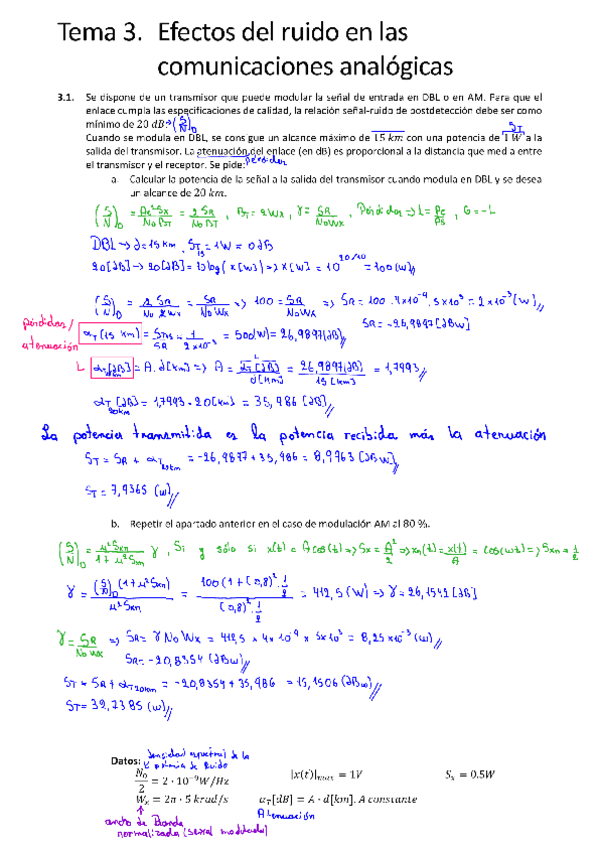 Tema 3. Efectos del ruido en las
comunicaciones analógicas
3.1. Se dispone de un transmisor que puede modular la señal de entrada en DBL o en AM. Para que el
enlace cumpla las especificaciones de calidad, la relación señal-ruido de postdetección debe ser como
mínimo de 20 dB. → (S/N)_D
Cuando se modula en DBL, se consigue un alcance máximo de 15 km con una potencia de 1 W a la
S_T
salida del transmisor. La atenuación del enlace (en dB) es proporcional a la distancia que med a entre
pérdidas
el transmisor y el receptor. Se pide:
a. Calcular la potencia de la señal a la salida del transmisor cuando modula en DBL y se desea
un alcance de 20 km.
(S/N)_D = Ac²Sx/N₀B_T = 2S_R/N₀B_T , B_T = 2Wx , γ = S_R/N₀Wx , Pérdidas => L = , G = -L
DBL → d = 15 km . S_T15 = 1W = 0dB
20[dB] → 20[dB] = 10 log(x[w]) → x[w] = 10^(20/10) = 100(w)
(S/N)_D = 2S_R/N₀2Wx = S_R/N₀Wx => 100 = S_R/N₀Wx => S_R = 100 · 4x10⁻⁹ · 5x10³ = 2x10⁻³ [W]
S_R = -26,9897 [dBW]
pérdidas/
atenuación
α_T(15 km) = S_T15/S_R = 1/2x10⁻³ = 500(W) = 26,9897(dB)
L α_T[dB] = A · d[km] => A = α_T[dB]/d[km] = 26,9897[dB]/15[km] = 1,7993
α_T[dB]20km = 1,7993 · 20[km] = 35,986 [dB]
La potencia transmitida es la potencia recibida más la atenuación
S_T = S_R + α_T20km = -26,9877 + 35,986 = 8,9963 [dBW]
S_T = 7,9365 (w)
b. Repetir el apartado anterior en el caso de modulación AM al 80 %.
(S/N)_D = μ²Sxn/1+μ²Sxn γ , Si y sólo si x(t) = A cos(ωt) => Sx = A²/2 => xn(t) = x(t)/A = cos(ωt) => Sxn = 1/2
γ = (S/N)_D (1+μ²Sxn)/μ²Sxn = 100(1+(0,8)²·1/2)/(0,8)²·1/2 = 412,5 (W) => γ = 26,1542 [dB]
γ = S_R/N₀Wx => S_R = γ N₀ Wx = 412,5 x 4x10⁻⁹ x 5x10³ = 8,25x10⁻³ (w)
S_R = -20,8354 (dBw)
S_T = S_R + α_T20km = -20,8354 + 35,986 = 15,1506 (dBw)
S_T = 32,7385 (w)
Datos: densidad espectral de la
potencia de Ruido
N₀/2 = 2 · 10⁻⁹W/Hz |x(t)|max = 1V Sx = 0.5W
Wx = 2π · 5 krad/s α_T[dB] = A · d[km]. A constante
ancho de Banda Atenuación
normalizada (señal modulada)